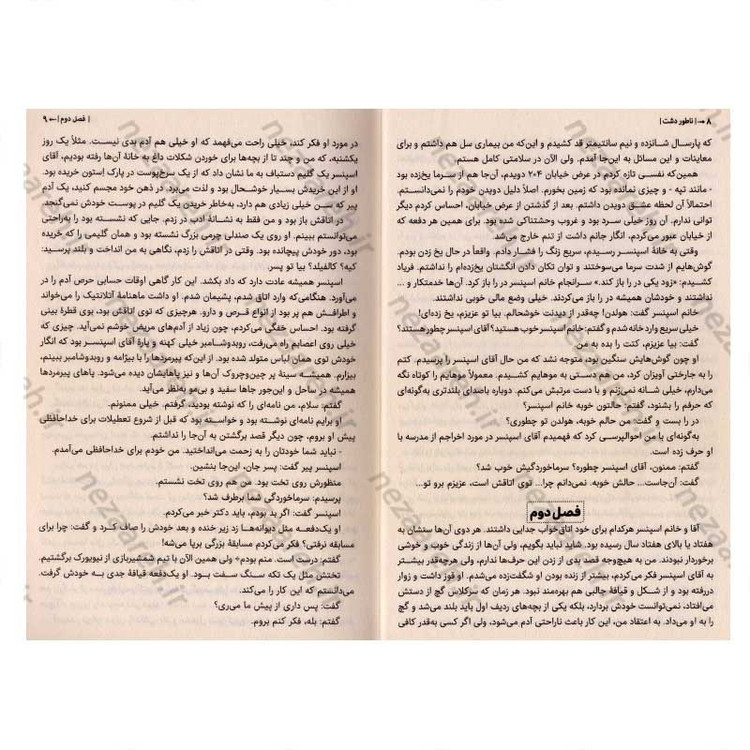 ۸ → | ناطور دشت |
که پارسال شانزده و نیم سانتیمتر قد کشیدم و این‌که من بیماری سل هم داشتم و برای
معاینات و این مسائل به این‌جا آمدم. ولی الآن در سلامتی کامل هستم.
همین‌که نفسی تازه کردم در عرض خیابان ۲۰۴ دویدم. آن‌جا هم از سرما یخ‌زده بود
- مانند تپه - و چیزی نمانده بود که زمین بخورم. اصلاً دلیل دویدن خودم را نمی‌دانستم.
احتمالاً آن لحظه عشق دویدن داشتم. بعد از گذشتن از عرض خیابان، احساس کردم دیگر
توانی ندارم. آن روز خیلی سرد بود و غروب وحشتناکی شده بود. برای همین هر دفعه که
از خیابان عبور می‌کردم، انگار جانم داشت از تنم خارج می‌شد.
وقتی به خانهٔ اسپنسر رسیدم، سریع زنگ را فشار دادم. واقعاً در حال یخ زدن بودم.
گوش‌هایم از شدت سرما می‌سوختند و توان تکان دادن انگشتان یخ‌زده‌ام را نداشتم. فریاد
کشیدم: «زود یکی در را باز کند.» سرانجام خانم اسپنسر در را باز کرد. آن‌ها خدمتکار و ...
نداشتند و خودشان همیشه در را باز می‌کردند. خیلی وضع مالی خوبی نداشتند.
خانم اسپنسر گفت: هولدن! چه‌قدر از دیدنت خوشحالم. بیا تو عزیزم، یخ زده‌ای!
خیلی سریع وارد خانه شدم و گفتم: خانم اسپنسر خوب هستید؟ آقای اسپنسر چطور هستند؟
گفت: بیا عزیزم، کتت را بده به من
او چون گوش‌هایش سنگین بود، متوجه نشد که من حال آقای اسپنسر را پرسیدم. کتم
را به جارختی آویزان کرد، من هم دستی به موهایم کشیدم. معمولاً موهایم را کوتاه نگه
می‌دارم، خیلی شانه نمی‌زنم و با دست مرتبش می‌کنم. دوباره باصدای بلندتری به‌گونه‌ای
که حرفم را بشنود، گفتم: حالتون خوبه خانم اسپنسر؟
در را بست و گفت: من حالم خوبه، هولدن تو چطوری؟
به‌گونه‌ای با من احوالپرسی کرد که فهمیدم آقای اسپنسر در مورد اخراجم از مدرسه با
او حرف زده است.
گفتم: ممنون، آقای اسپنسر چطوره؟ سرماخوردگیش خوب شد؟
گفت: آن‌جاست... حالش خوبه. نمی‌دانم چرا... توی اتاقش است، عزیزم برو تو...
فصل دوم
آقا و خانم اسپنسر هرکدام برای خود اتاق‌خواب جدایی داشتند. هر دوی آن‌ها سنشان به
هفتاد یا بالای هفتاد سال رسیده بود. شاید نباید بگویم، ولی آن‌ها از زندگی خوب و خوشی
برخوردار نبودند. من به هیچ‌وجه قصد بدی از زدن این حرف‌ها ندارم، ولی هرچه‌قدر بیشتر
به آقای اسپنسر فکر می‌کردم، بیشتر از زنده بودن او شگفت‌زده می‌شدم. او قوز داشت و زوار
دررفته بود و از شکل و قیافهٔ جالبی هم بهره‌مند نبود. هر زمان که سرکلاس گچ از دستش
می‌افتاد، نمی‌توانست خودش بردارد، بلکه یکی از بچه‌های ردیف اول باید بلند می‌شد و گچ
را به او می‌داد. به اعتقاد من، این کار باعث ناراحتی آدم می‌شود، ولی اگر کسی به‌قدر کافی
| فصل دوم | ← ۹
در مورد او فکر کند، خیلی راحت می‌فهمد که او خیلی هم آدم بدی نیست. مثلاً یک روز
یکشنبه، که من و چند تا از بچه‌ها برای خوردن شکلات داغ به خانهٔ آن‌ها رفته بودیم، آقای
اسپنسر یک گلیم دستباف به ما نشان داد که از یک سرخ‌پوست در پارک استون خریده بود.
او از این خریدش بسیار خوشحال بود و لذت می‌برد. در ذهن خود مجسم کنید، یک آدم
پیر که سن خیلی زیادی هم دارد، به‌خاطر خریدن یک گلیم در پوست خودش نمی‌گنجد
در اتاقش باز بود و من فقط به نشانهٔ ادب در زدم. جایی که نشسته بود را به‌راحتی
می‌توانستم ببینم. او روی یک صندلی چرمی بزرگ نشسته بود و همان گلیمی را که خریده
بود، دور خودش پیچانده بود. وقتی در اتاقش را زدم، نگاهی به من انداخت و بلند پرسید:
کیه؟ کالفیلد؟ بیا تو پسر.
اسپنسر همیشه عادت دارد که داد بکشد. این کار گاهی اوقات حسابی حرص آدم را در
می‌آورد. هنگامی‌که وارد اتاق شدم، پشیمان شدم. او داشت ماهنامهٔ آتلانتیک را می‌خواند
و اطرافش هم پر بود از انواع قرص و دارو. هرچیزی که توی اتاقش بود، بوی قطرهٔ بینی
گرفته بود. احساس خفگی می‌کردم، چون زیاد از آدم‌های مریض خوشم نمی‌آید. چیزی که
خیلی روی اعصابم راه می‌رفت، روبدوشامبر خیلی کهنه و پارهٔ آقای اسپنسر بود که انگار
خودش توی همان لباس متولد شده بود. از این‌که پیرمردها را با پیژامه و روبدوشامبر ببینم،
بیزارم. همیشه سینهٔ پر چین‌وچروک آن‌ها و نیز پاهایشان دیده می‌شود. پاهای پیرمردها
همیشه در ساحل و این‌جور جاها سفید و بی‌مو به‌نظر می‌آید.
گفتم: سلام، من نامه‌ای را که نوشته بودید، گرفتم. خیلی ممنونم.
او برایم نامه‌ای نوشته بود و خواسته بود که قبل از شروع تعطیلات برای خداحافظی
پیش او بروم، چون دیگر قصد برگشتن به آن‌جا را نداشتم.
- نباید شما خودتان را به زحمت می‌انداختید. من خودم برای خداحافظی می‌آمدم.
اسپنسر پیر گفت: پسر جان، این‌جا بنشین.
منظورش روی تخت بود. من هم روی تخت نشستم.
پرسیدم: سرماخوردگی شما برطرف شد؟
اسپنسر گفت: اگر بد بودم، باید دکتر خبر می‌کردم.
او یک‌دفعه مثل دیوانه‌ها زد زیر خنده و بعد خودش را صاف کرد و گفت: چرا برای
مسابقه نرفتی؟ فکر می‌کردم مسابقهٔ بزرگی برپا می‌شه!
گفتم: درست است. منم بودم؛ ولی همین الآن با تیم شمشیربازی از نیویورک برگشتیم.
تختش مثل یک تکه سنگ سفت بود. او یک‌دفعه قیافهٔ جدی به خودش گرفت.
می‌دانستم که این کار را می‌کند.
گفت: پس داری از پیش ما می‌ری؟
گفتم: بله، فکر کنم بروم.
nezarah.ir